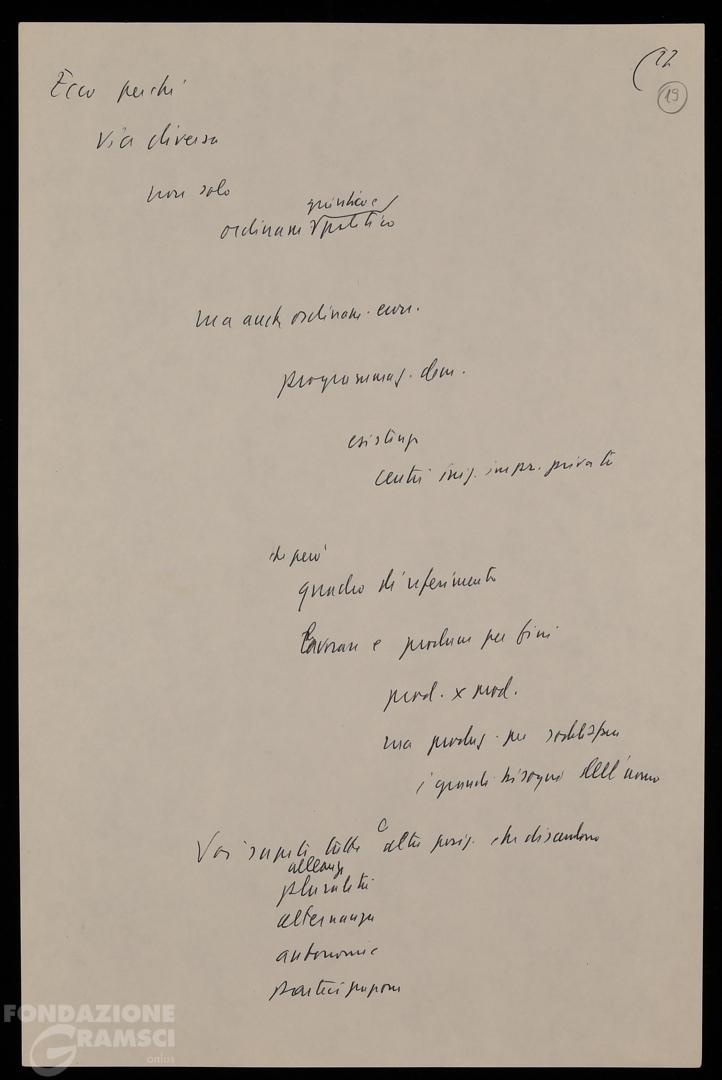 22
19
Ecco perché
Via diversa
non solo
giuridico e
ordinam politico
ma anche ordinam. econ.
programmaz. dem.
esistenza
centri iniz. impr. private
che però
quadro di riferimento
lavorare e produrre per fini
prod. x prod.
ma produz. per soddisfare
i grandi bisogni dell'uomo
Voi sapete tutte le altre posiz. che discendono
alleanze
pluralità
alternanza
autonomie
partecipazione
FONDAZIONE
GRAMSCI
onlus